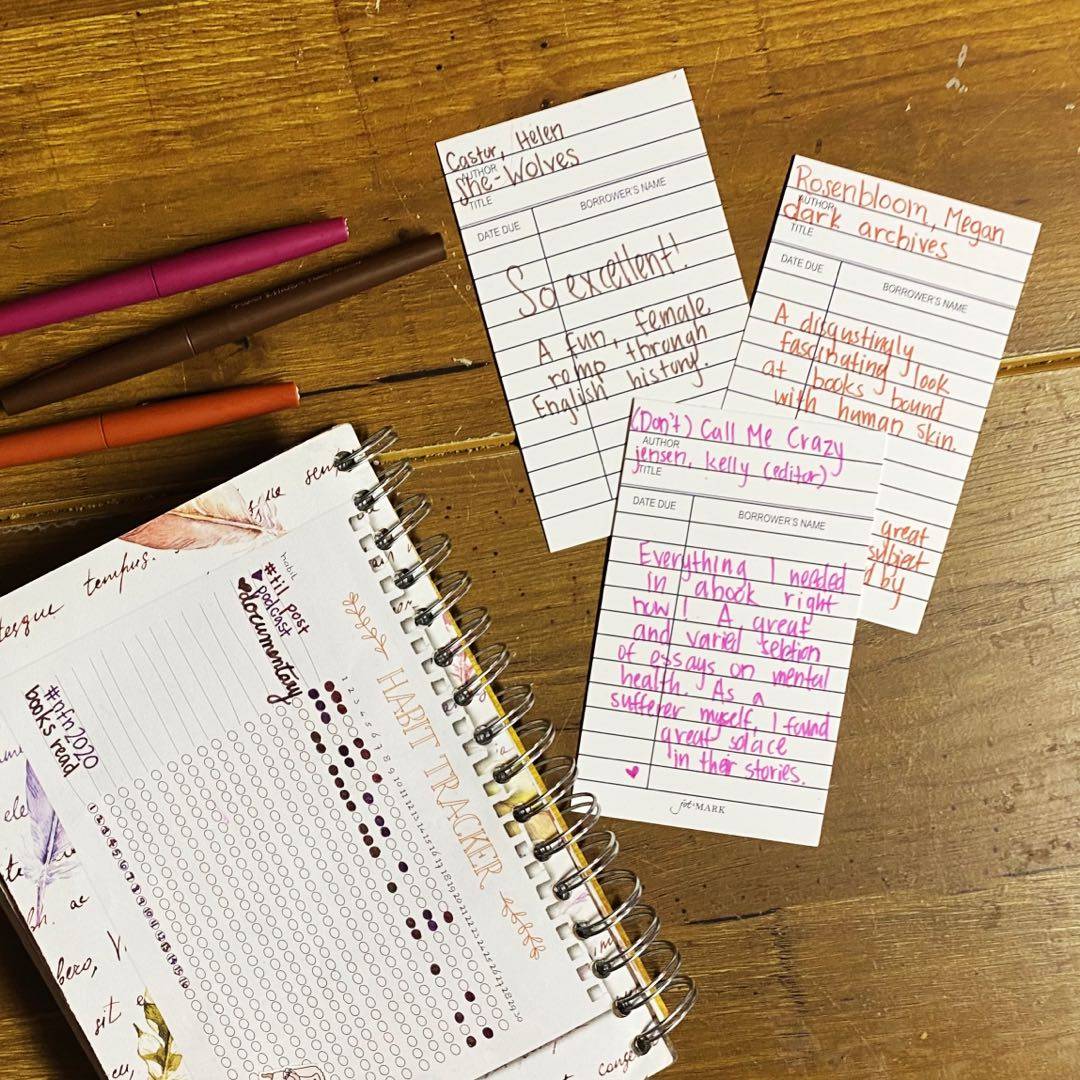 Castor, Helen
AUTHOR
She-Wolves
TITLE
DATE DUE
BORROWER'S NAME
So excellent!
A fun, female
romp through
English history.
Rosenbloom, Megan
AUTHOR
dark archives
TITLE
DATE DUE
BORROWER'S NAME
A disgustingly
fascinating look
at books bound
with human skin.
great
subject
by
(Don't) Call Me Crazy
AUTHOR
jensen, kelly (editor)
TITLE
DATE DUE
BORROWER'S NAME
Everything I needed
in a book right
now! A great
and varied
of essays on mental
health. As a
sufferer myself, I found
great solace
in their stories.
MARK
tempus.
HABIT TRACKER
habit
#til post
podcast
documentary
1 2 3 4 5 6 7 8 9 10 11 12 13 14 15 16 17 18 19 20 21 22 23 24 25 26 27 28 29 30
#nfn2020
books read
1 2 3 4 5 6 7 8 9 10 11 12 13 14 15 16
ac
sit